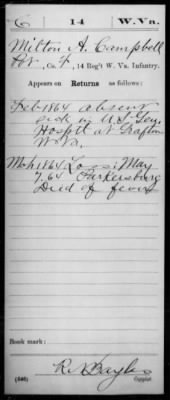 C 14 W.Va.
Milton A. Campbell
Pvt, Co. F, 14 Reg't W. Va. Infantry.
Appears on Returns as follows:
Feb 1864 absent
sick in U.S. Gen.
Hosptl at Grafton
W.Va.
Mch 1864 Loss: May
7.64 Parkersburg
Died of fever
Book mark:
R. N. Bayles
(646) Copyist.